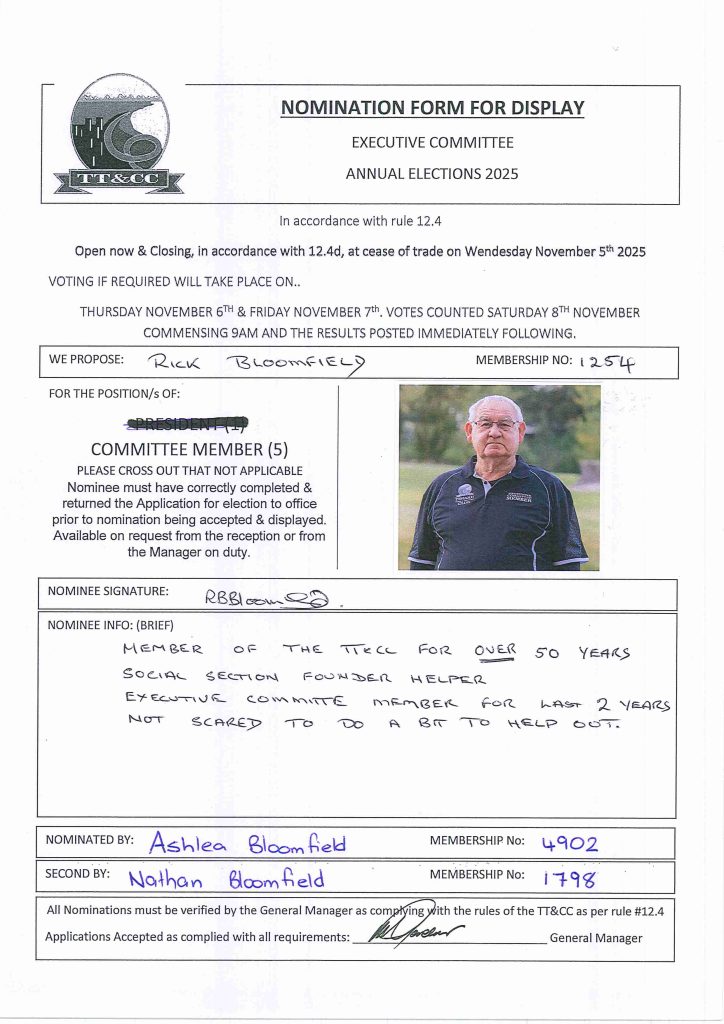 TT&CC
NOMINATION FORM FOR DISPLAY
EXECUTIVE COMMITTEE
ANNUAL ELECTIONS 2025
In accordance with rule 12.4
Open now & Closing, in accordance with 12.4d, at cease of trade on Wendesday November 5th 2025
VOTING IF REQUIRED WILL TAKE PLACE ON..
THURSDAY NOVEMBER 6TH & FRIDAY NOVEMBER 7th. VOTES COUNTED SATURDAY 8TH NOVEMBER
COMMENSING 9AM AND THE RESULTS POSTED IMMEDIATELY FOLLOWING.
WE PROPOSE: RICK BLOOMFIELD MEMBERSHIP NO: 1254
FOR THE POSITION/s OF:
PRESIDENT (1)
COMMITTEE MEMBER (5)
PLEASE CROSS OUT THAT NOT APPLICABLE
Nominee must have correctly completed &
returned the Application for election to office
prior to nomination being accepted & displayed.
Available on request from the reception or from
the Manager on duty.
NOMINEE SIGNATURE: RBBloom
NOMINEE INFO: (BRIEF)
MEMBER OF THE TT&CC FOR OVER 50 YEARS
SOCIAL SECTION FOUNDER HELPER
EXECUTIVE COMMITTE MEMBER FOR LAST 2 YEARS
NOT SCARED TO DO A BIT TO HELP OUT.
NOMINATED BY: Ashlea Bloomfield MEMBERSHIP No: 4902
SECOND BY: Nathan Bloomfield MEMBERSHIP No: 1798
All Nominations must be verified by the General Manager as complying with the rules of the TT&CC as per rule #12.4
Applications Accepted as complied with all requirements: General Manager